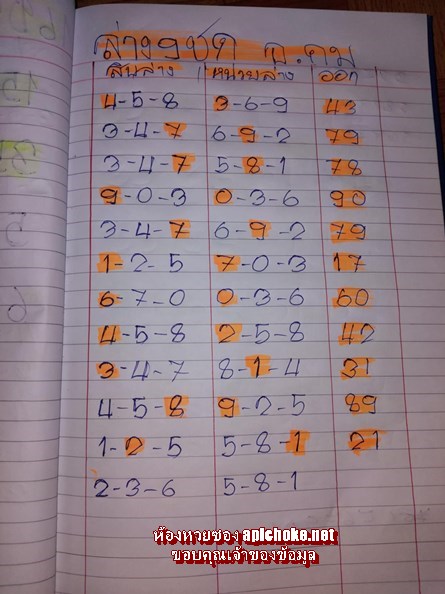 ล่าง 9 ชุด อ.คม
สิบล่าง หน่วยล่าง ออก
4-5-8 3-6-9 43
3-4-7 6-9-2 79
3-4-7 5-8-1 78
9-0-3 0-3-6 90
3-4-7 6-9-2 79
1-2-5 7-0-3 17
6-7-0 0-3-6 60
4-5-8 2-5-8 42
3-4-7 8-1-4 31
4-5-8 9-2-5 89
1-2-5 5-8-1 21
2-3-6 5-8-1
ห้องหวยซอง apichoke.net
ขอบคุณเจ้าของข้อมูล